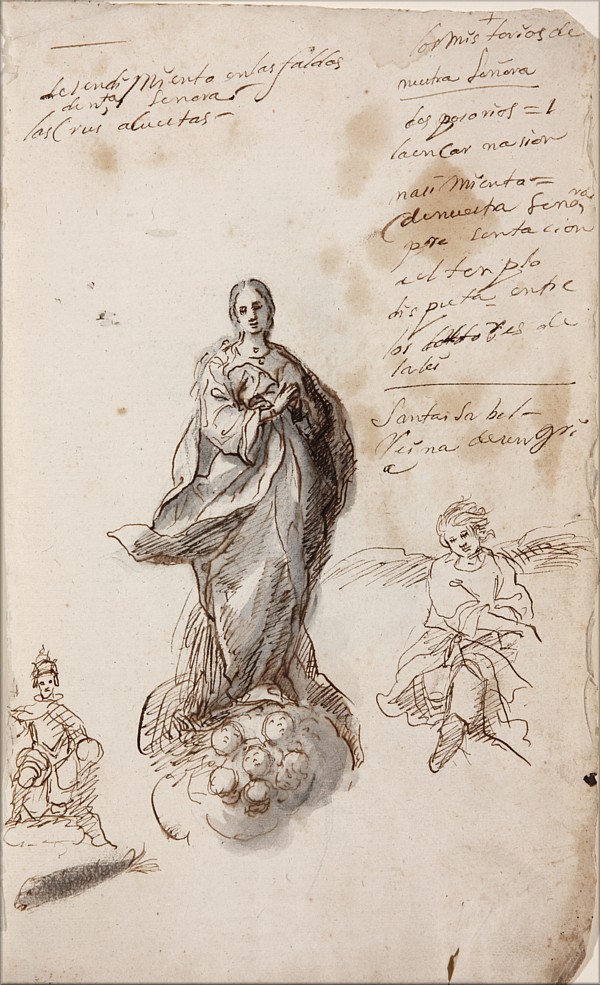 desendi Miento en las faldas
de ntª Señora
las Crus a cuestas =
los Mis terios de
nuetra Señora
des posorios = 1
la en Car nasion
nasi Miento =
de nuestra Señora
pre sentacion
a el templo
dis puta entre
los dottores de
la lei
Santa isa bel =
Rei na de un gri
a